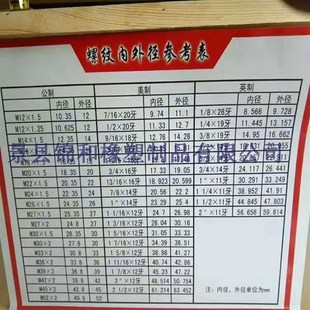 螺纹内外径参考表
公制 美制 英制
内径 外径 内径 外径 内径 外径
M12×1.5 10.35 12 7/16×20牙 9.74 11.1 1/8×28牙 8.566 9.728
M12×1.25 10.625 12 1/2×20牙 11.33 12.7 1/4×19牙 11.445 13.157
M14×1.5 9/16×18牙 12.76 14.28 3/8×19牙 14.95 16.662
景县锦和橡塑制品有限公司
M20×1.5 18.35 20 3/4×16牙 3/4×14牙 24.117 26.441
M22×1.5 20.35 22 13/16×16牙 18.923 20.599 1"×11牙 30.291 33.249
M24×1.5 22.35 24 7/8×14牙 20.56 22.2 1 1/4×11牙 38.952 41.91
M26×1.5 24.35 26 1"×14牙 23.57 25.4 1 1/2×11牙 44.845 47.803
M27×1.5 25.35 27 1 1/16×12牙 24.7 26.98 2"×11牙 56.656 59.614
M27×2 24.8 27 1 3/16×12牙 27.87 30.16
M30×1.5 28.35 30 1 5/16×12牙 31.05 33.3
M30×2 1 7/16×12牙 34.22 36.5
M33×2 1 5/8×12牙 38.99 41.27
M36×2 1 11/16×12牙 40.57 42.86
M39×2 1 7/8×12牙 45.33 47.6
M42×2 2"×12牙 48.514 50.754
M45×2 2 1/2×12牙 61.214 63.452
M52×2 49.8 52
注:内径,外径单位为mm